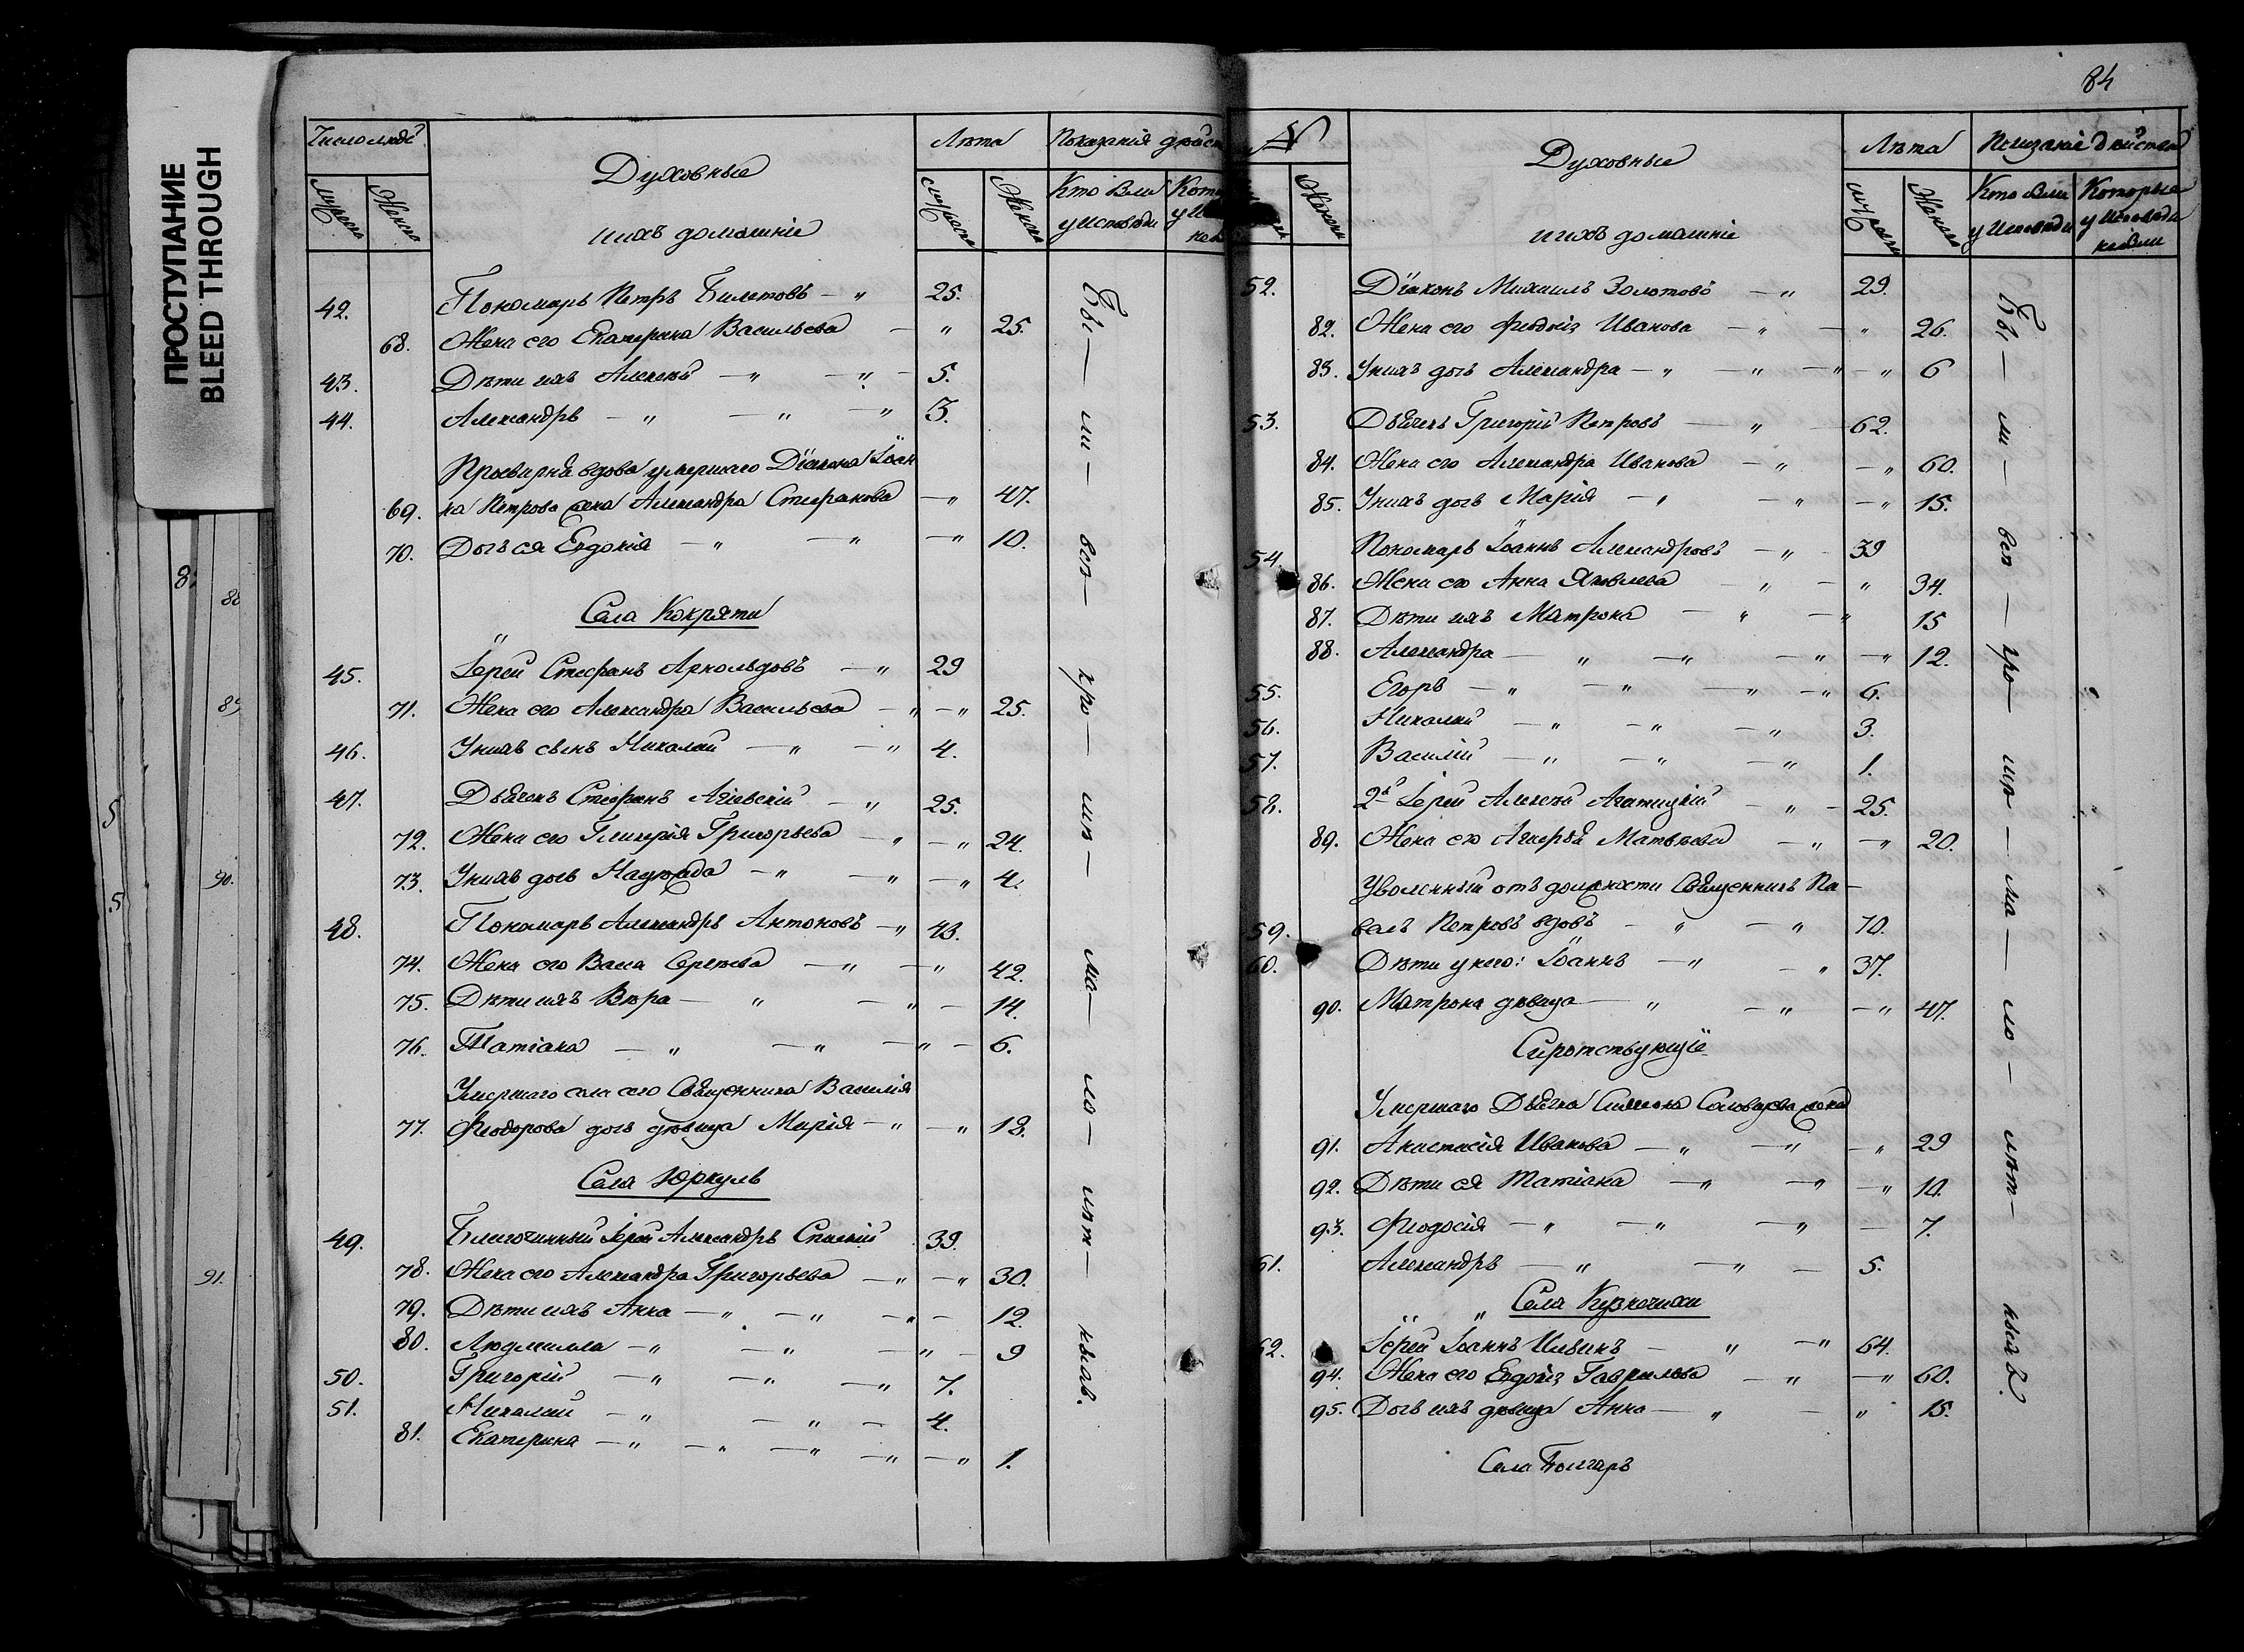 ПРОСТУПАНИЕ
BLEED THROUGH
84
Число людей
Духовные
ихъ домашніе
Лѣта
Показанія дѣйст
Мужеска
Женска
Мужеска
Женска
Кто были
у исповѣди
42. Пономарь Петръ Билетовъ — " 25.
68. Жена его Екатерина Васильева — " 25.
43. Дѣти ихъ Алексѣй — " — " — 5.
44. Александръ — " — " — " 3.
Просвирня вдова умершаго Діакона Іоан
69. на Петрова жена Александра Стефанова — " 47.
70. Дочь ея Евдокія — " — " — " 10.
Села Кокряти
45. Іерей Стефанъ Аркольдовъ — " 29
71. Жена его Александра Васильева — " — " 25.
46. У нихъ сынъ Николай — " — " 4.
47. Дьячекъ Стефанъ — " 25.
72. Жена его Гликерія Григорьева — " — " 24.
73. У нихъ дочь Надежда — " — " — " 4.
48. Пономарь Александръ Антоновъ — " 43.
74. Жена его Васса Сергѣева — " — " 42.
75. Дѣти ихъ Вѣра — " — " — 14.
76. Татіана — " — " — " — 6.
Умершаго села сего Священника Василія
77. Феодорова дочь дѣвица Марія — " — " 18.
Села Юркуль
49. Благочинный Іерей Александръ 39.
78. Жена его Александра Григорьева — " — " 30.
79. Дѣти ихъ Анна — " — " — " — 12.
80. Людмилла — " — " — " — 9
50. Григорій — " — " — " 7.
51. Николай — " — " — 4.
81. Екатерина — " — " — " — " — " 1.
Бы — ли — всѣ — про — шѣ — ма — ло — лѣт — ныхъ.
№
Духовные
и ихъ домашніе
Лѣта
Показаніе дѣйства
Женски
Женска
Кто были
у Исповѣди
Которые
у Исповѣди
небыли
52. Діаконъ Михаилъ Золотовъ — " 29.
82. Жена его Иванова — " — " 26.
83. У нихъ дочь Александра — " — " — " — " 6
53. Дьячекъ Григорій Петровъ — " — 62.
84. Жена его Александра Иванова — " — " 60.
85. У нихъ дочь Марія — " — " — " 15.
54. Пономарь Іоаннъ Александровъ — " — 39
86. Жена его Анна Яковлева — " — " 34.
87. Дѣти ихъ Матрона — " — " 15
88. Александра — " — " — " — " 12.
55. Егоръ — " — " — " — " 6.
56. Николай — " — " — " 3.
57. Василій — " — " — " 1.
58. 2й Іерей Алексѣй — " — 25.
89. Жена его Матвѣева — " — " 20.
Уволенный отъ должности Священникъ Па —
59. велъ Петровъ вдовъ — " — " 70.
60. Дѣти у него: Іоаннъ — " — " 37.
90. Матрона дѣвица — " — " — " 47.
Сиротствующіе
Умершаго Дьячка Симеона Соловьева жена
91. Анастасія Иванова — " — " — " 29
92. Дѣти ея Татіана — " — " — " 10.
93. Феодосія — " — " — " — 7.
61. Александръ — " — " — 5.
Села Кузнечихи
62. Іерей Іоаннъ Ильинъ — " — " 64.
94. Жена его Гаврилова — " — " 60.
95. Дочь ихъ дѣвица Анна — " — " 15.
Села Болгаръ
Бы — ли — всѣ — про — шѣ — ма — ло — лѣт — ныхъ.
8
88
89
90.
91.
5
5